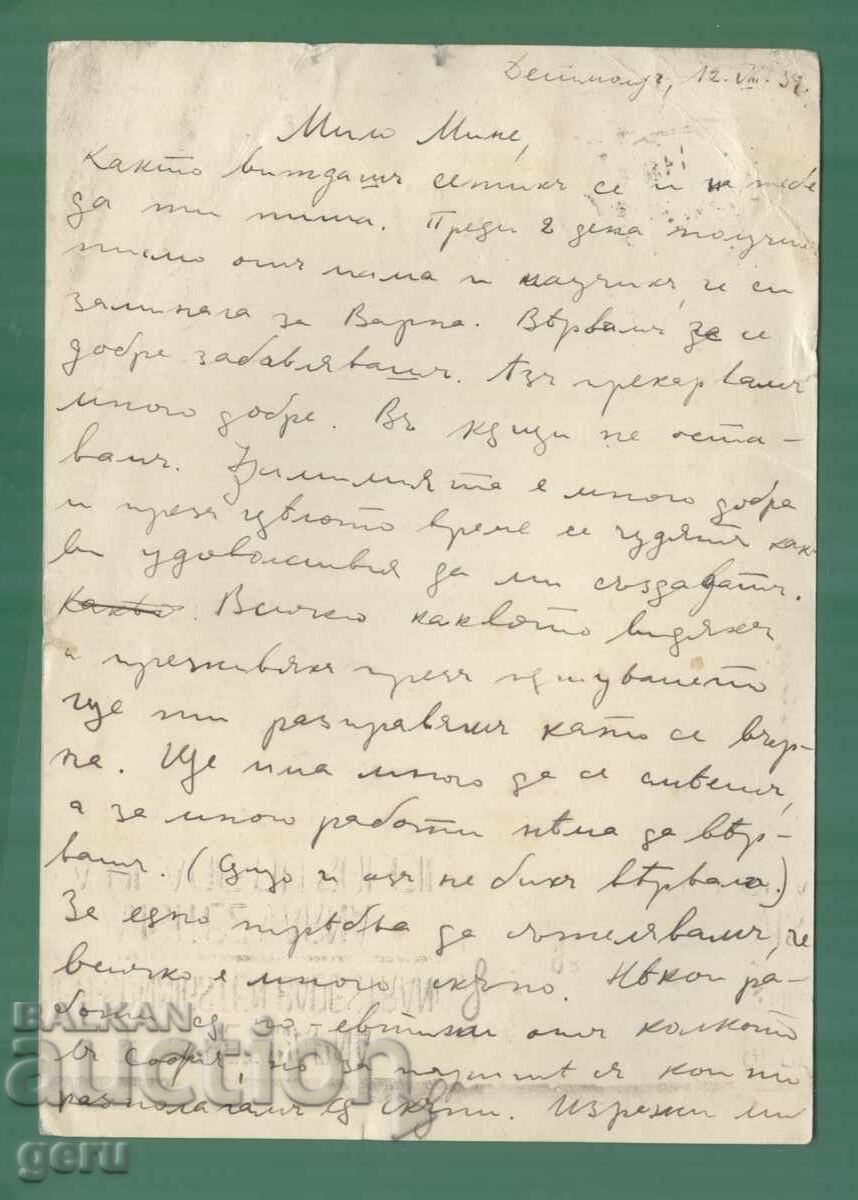 Детмолд, 12. VIII. 39.
Мило Мине,
Както виждашъ сетихъ се и на тебе
да ти пиша. Преди 2 дена получих
писмо отъ мама и научихъ, че си
заминала за Варна. Вѣрвамъ че се
добре забавлявашъ. Азъ прекарвамъ
много добре. Въ кѫщи не оста-
вамъ. Фамилията е много добра
и презъ цѣлото време се чудятъ как-
ви удоволствия да ми създаватъ.
Какъв. Всичко каквото видяхъ
и преживяхъ презъ пѫтуването
ще ти разправямъ като се вър-
на. Ще има много да се смѣемъ,
а за много работи нѣма да вѣр-
вашъ. (Сѫщо и азъ не бихъ вѣрвала.)
За едно трѣбва да съжелявамъ, че
всичко е много скъпо. Нѣкои ра-
боти сѫ по-евтини отъ колкото
въ София, но за паритѣ съ които
разполагамъ сѫ скъпи. Изрежи ми
BALKAN
auction
geru